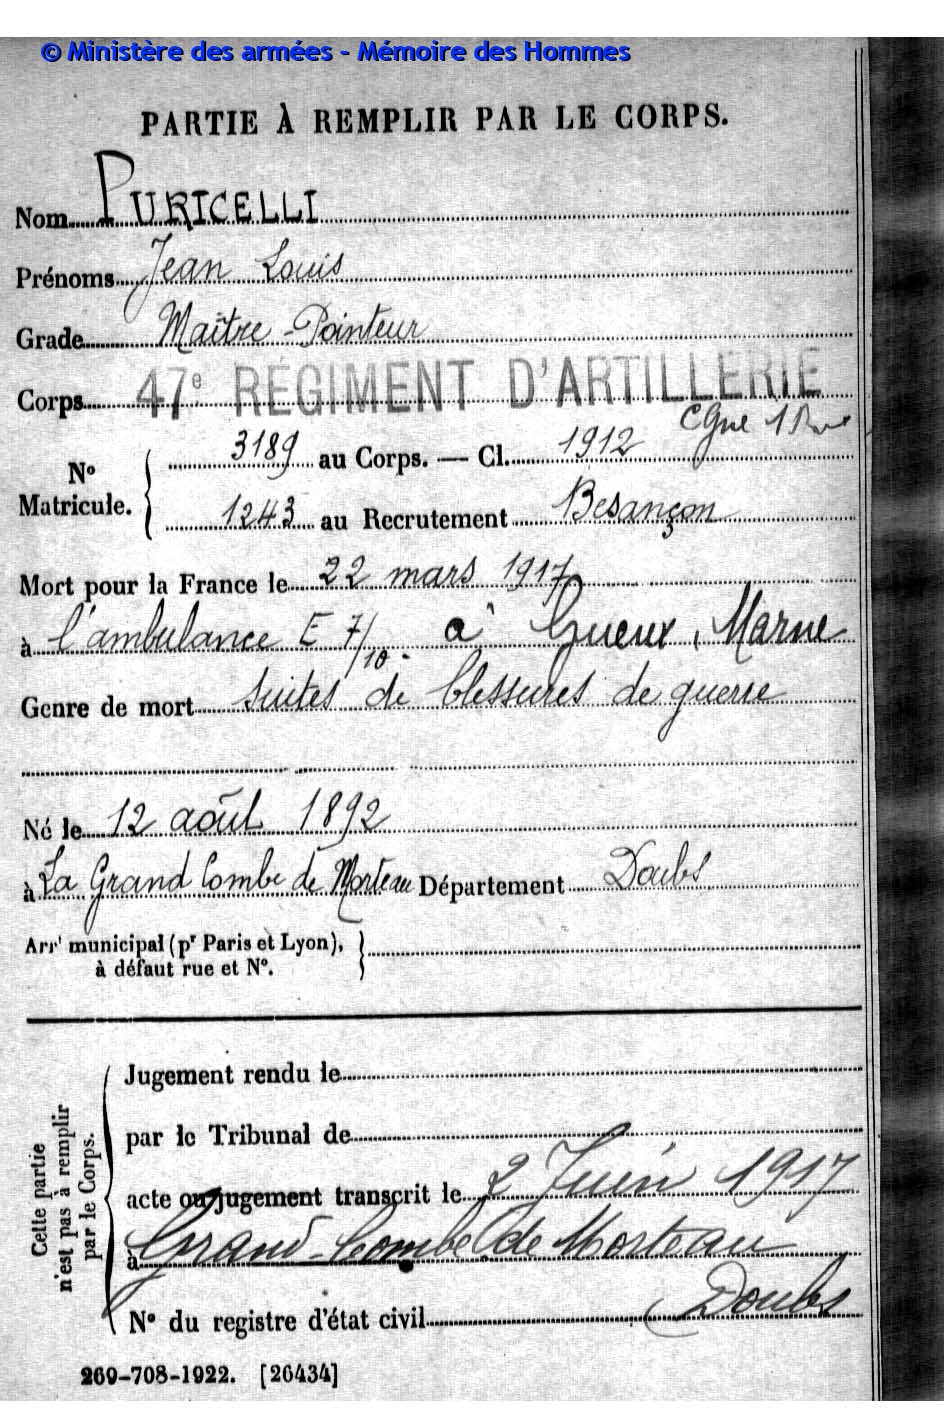 © Ministère des armées - Mémoire des Hommes
PARTIE À REMPLIR PAR LE CORPS.
Nom PURICELLI
Prénoms Jean Louis
Grade Maître-Pointeur
Corps 47e RÉGIMENT D'ARTILLERIE
No Matricule. 3189 au Corps. — Cl. 1912
1243 au Recrutement Besançon
Mort pour la France le 22 mars 1917
à l'ambulance E 7/10. à Gueux, Marne
Genre de mort suites de blessures de guerre
Né le 12 août 1892
à La Grand Combe de Morteau Département Doubs
Arrt municipal (pr Paris et Lyon),
à défaut rue et No.
Cette partie
n'est pas à remplir
par le Corps.
Jugement rendu le
par le Tribunal de
acte ou jugement transcrit le 2 Juin 1917
à Grand-Combe de Morteau
(Doubs
No du registre d'état civil
269-708-1922. [26434]